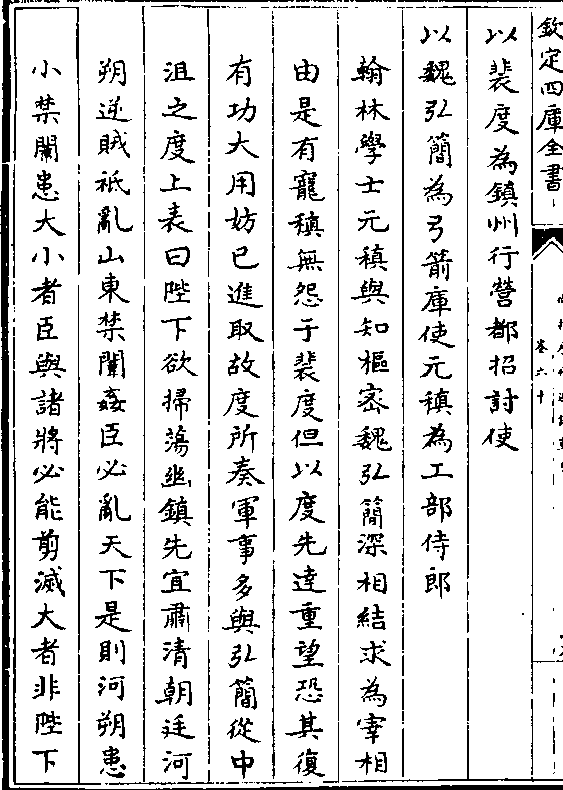 欽定四庫全書
卷六十
以裴度為鎮州行營都招討使
以魏弘簡為弓箭庫使元稹為工部侍郎
翰林學士元稹與知樞密魏弘簡深相結求為宰相
由是有寵稹無怨于裴度但以度先達重望恐其復
有功大用妨已進取故度所奏軍事多與弘簡從中
沮之度上表曰陛下欲掃蕩幽鎮先宜肅清朝廷河
朔逆賊祗亂山東禁闈姦臣必亂天下是則河朔患
小禁闈患大小者臣與諸將必能剪滅大者非陛下